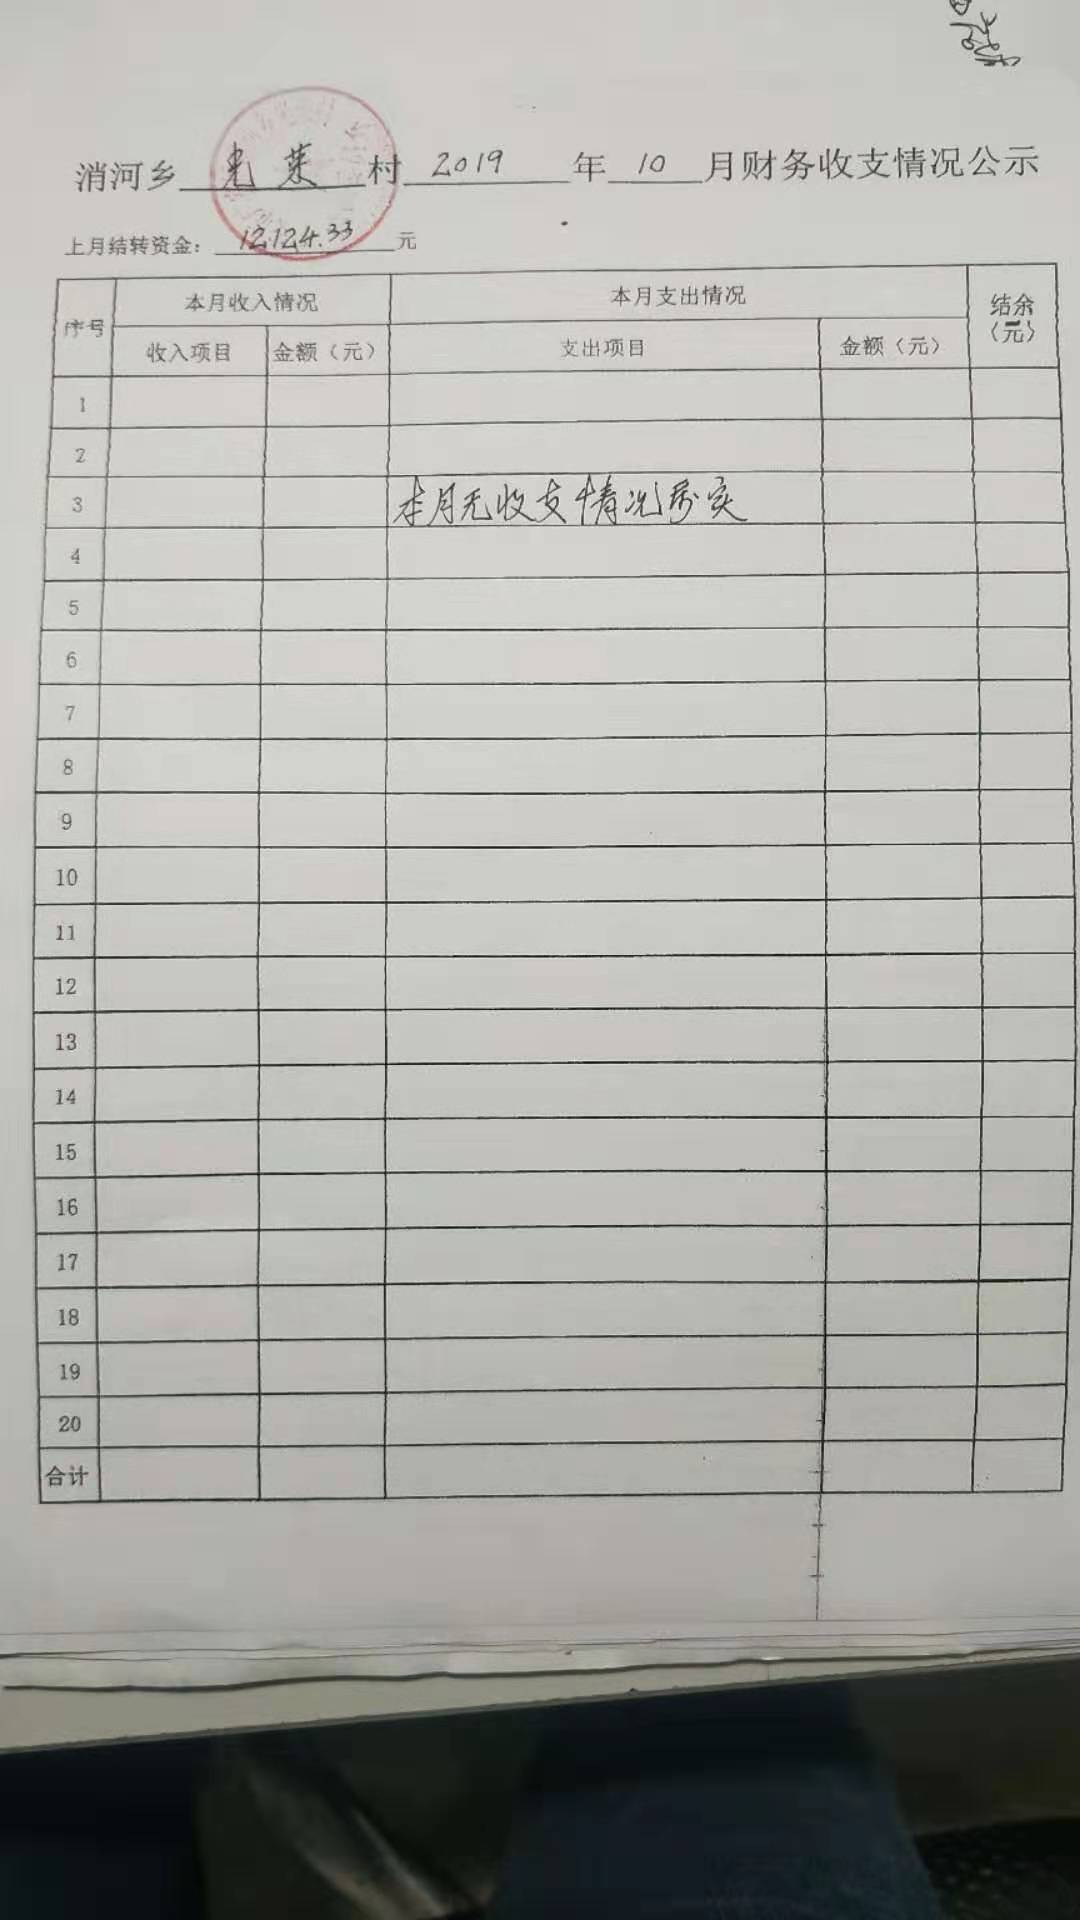 消河乡 光荣 村 2019 年 10 月财务收支情况公示
上月结转资金： 12124.33 元
序号 本月收入情况 本月支出情况 结余（元）
收入项目 金额（元） 支出项目 金额（元）
1
2
3 本月无收支情况属实
4
5
6
7
8
9
10
11
12
13
14
15
16
17
18
19
20
合计